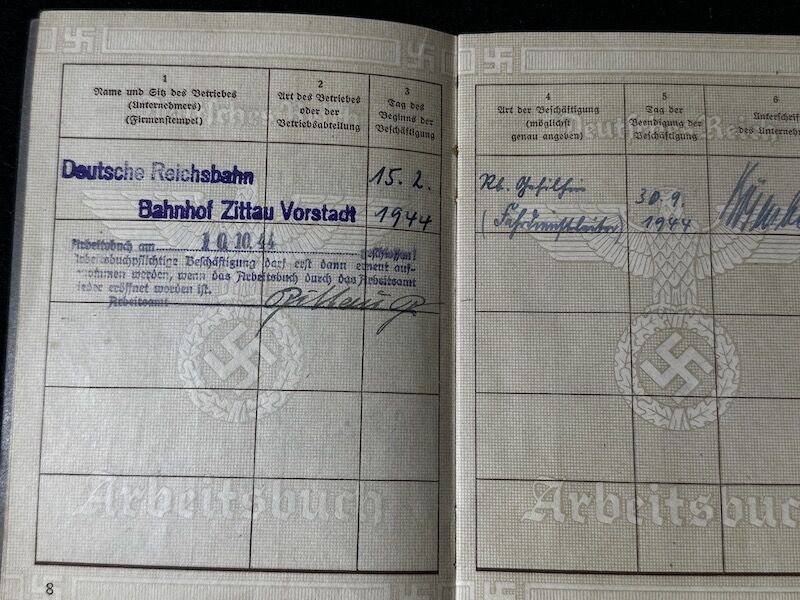 1
Name und Sitz des Betriebes
(Unternehmers)
(Firmenstempel)
2
Art des Betriebes
oder der
Betriebsabteilung
3
Tag des
Beginns der
Beschäftigung
Deutsche Reichsbahn
Bahnhof Zittau Vorstadt
15. 2.
1944
Arbeitsbuch am 10.10.44 geschlossen!
Arbeitsbuchpflichtige Beschäftigung darf erst dann erneut auf-
genommen werden, wenn das Arbeitsbuch durch das Arbeitsamt
wieder eröffnet worden ist.
Arbeitsamt
Arbeitsbuch
8
4
Art der Beschäftigung
(möglichst
genau angeben)
5
Tag der
Beendigung der
Beschäftigung
6
Unterschrift
des Unterneh
Deutsches Reich
Rb. Gehilfin
(Fahrdienstleiter)
30. 9.
1944
Arbeitsbuch